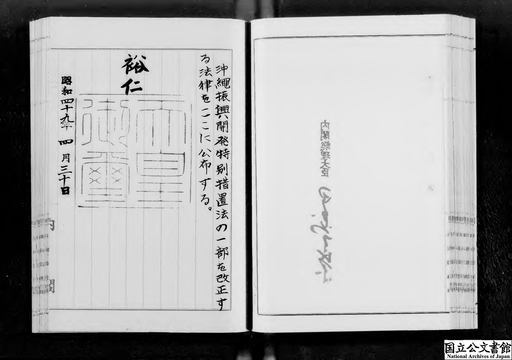 沖縄振興開発特別措置法の一部を改正す
る法律をここに公布する。
裕仁
天皇
御璽
昭和四十九年四月三十日
内閣
内閣総理大臣
国立公文書館
National Archives of Japan